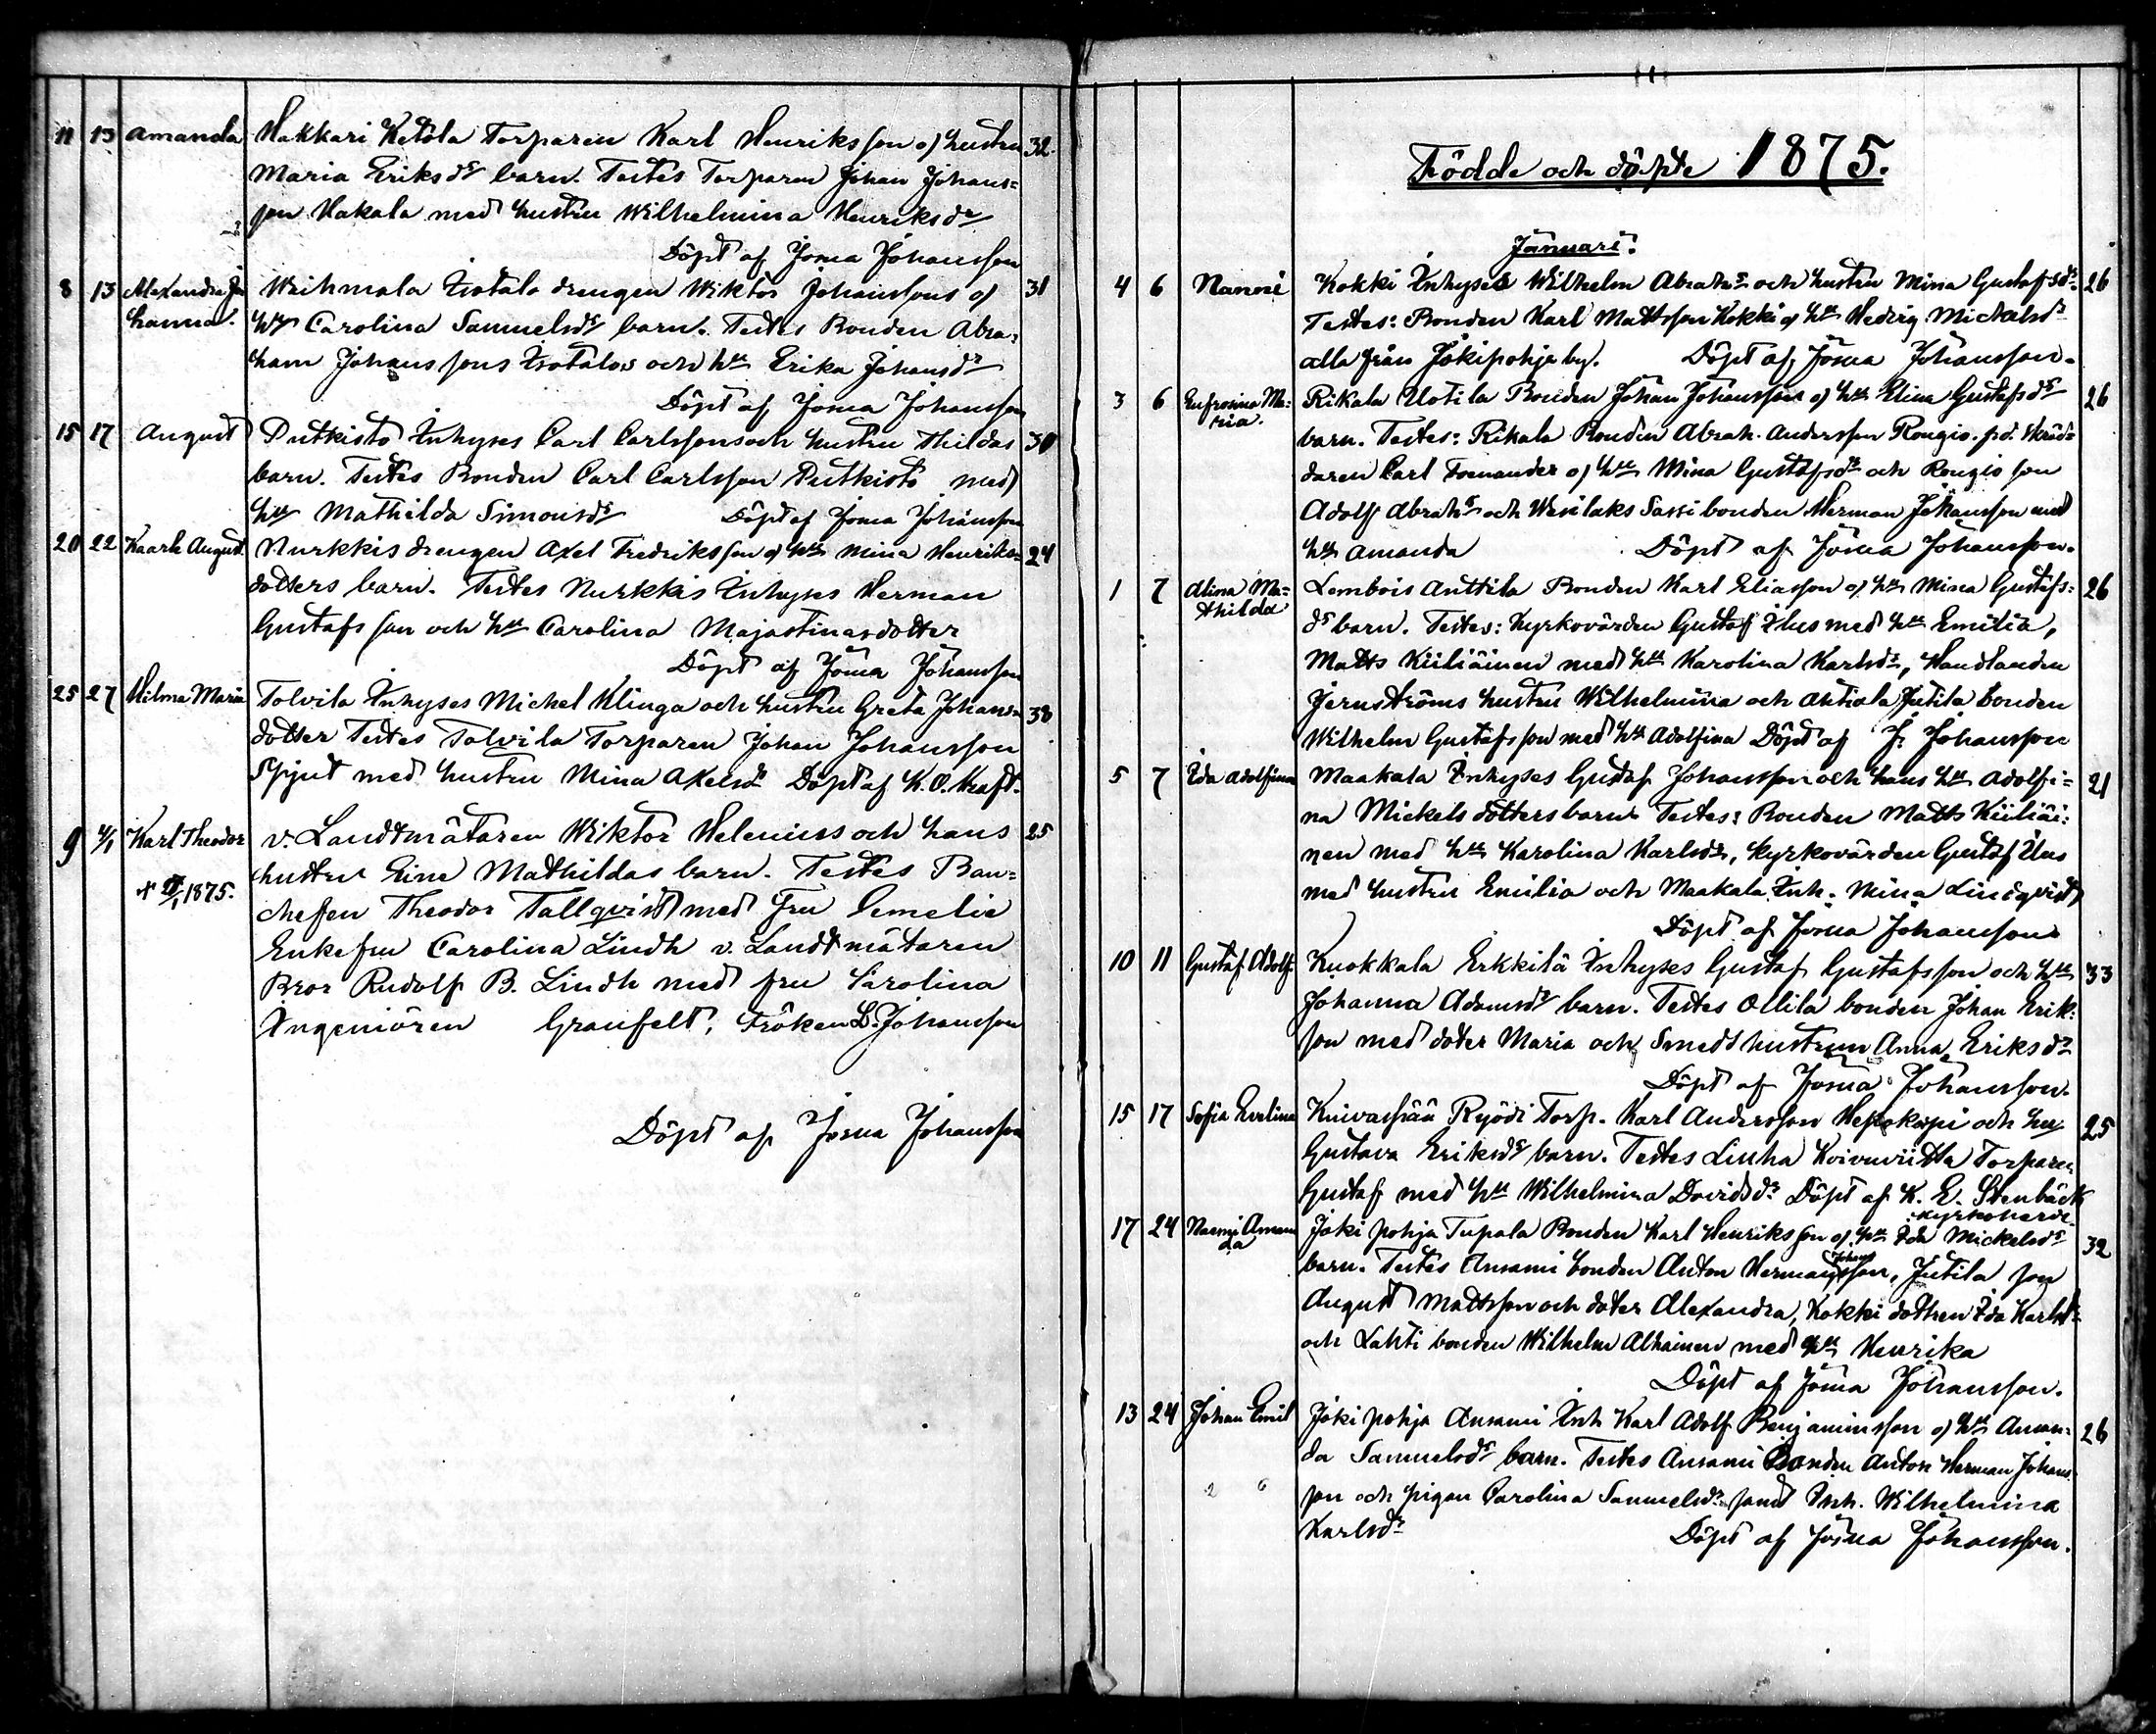 11 13 Amanda Hakkari Ketola Torparen Karl Henriksson o hustru 32
Maria Eriksdr barn. Testes Torparen Johan Johans=
son Hakala med hustru Wilhelmina Henriksdr
Döpt af Josua Johansson
8 13 Alexandra Jo Isotalo drengen Wiktor Johanssons o 31
hanna. Carolina Samuelsdr barn. Testes Bonden Abra=
ham Johanssons Isotalos och hu Erika Johansdr
Döpt af Josua Johansson
15 17 August Putkisto Inhyses Carl Carlssons och hustru Thildas 30
barn. Testes Bonden Carl Carlsson Putkisto med
hu Mathilda Simonsdr Döpt af Josua Johansson
20 22 Kaarle August. Nurkkis drengen Axel Fredriksson o hu Mina Henriks= 24
dotters barn. Testes Nurkkis Inhyses Herman
Gustafsson och hu Carolina Majastinasdotter
Döpt af Josua Johansson
25 27 Hilma Maria Tolvila Inhyses Michel Klinga och hustru Greta Johans= 38
dotter Testes Tolvila Torparen Johan Johansson
Spjut med hustru Mina Axelsdr Döpt af K. O. Kraft.
9 4/1 Karl Theodor v. Landtmätaren Wiktor Helenius och hans 25
hustru Eine Mathildas barn. Testes Ban=
1875. chefen Theodor Tallqvist med Fru Emelie
Enkefru Carolina Lindh v. Landtmätaren
Bror Rudolf B. Lindh med fru Carolina
Ingeniören Granfelt, Fröken L. Johansson
Döpt af Josua Johansson
1
Födde och döpte 1875.
Januari.
4 6 Nanni Kokki Inhyses Wilhelm Abrahs och hustru Mina Gustafsdr 26
Testes: Bonden Karl Mattsson Kokki o hu Hedvig Mickelsdr
alla från Jokipohja by. Döpt af Josua Johansson.
3 6 Eufrosina Ma= Rikala Uotila Bonden Johan Johansson o hu Elina Gustafsdr 26
ria. barn. Testes: Rikala Bonden Abrah. Andersson Rongio. Skräd=
daren Carl Fornander o hu Mina Gustafsdr och Rongio son
Adolf Abrahs och Wesilaks Sassi bonden Herman Johansson med
hu Amanda Döpt af Josua Johansson.
1 7 Alina Ma= Lembois Anttila Bonden Karl Eliasson o hu Mina Gustafs= 26
thilda dr barn. Testes: Kyrkovärden Gustaf Ilus med hu Emilia,
Matts Kiiliäinen med hu Karolina Karlsdr, Handlanden
Jernströms hustru Wilhelmina och Ahtiala Jutila bonden
Wilhelm Gustafsson med hu Adolfina Döpt af J. Johansson
5 7 Ida Adolfina Maakala Inhyses Gustaf Johansson och hans hu Adolfi= 21
na Mickelsdotters barn Testes: Bonden Matts Kiiliäi=
nen med hu Karolina Karlsdr, kyrkovärden Gustaf Ilus
med hustru Emilia och Maakala Inh. Mina Lindqvist
Döpt af Josua Johansson
10 11 Gustaf Adolf Kuokkala Erkkilä Inhyses Gustaf Gustafsson och hu 33
Johanna Adamsdr barn. Testes Ollila bonden Johan Erik=
son med doter Maria och Smeds hustrun Anna Eriksdr
Döpt af Josua Johansson.
15 17 Sofia Evelina Kuivaspää Ryödi Torp. Karl Andersson och hu 25
Gustava Eriksdr barn. Testes Linha Koivuviitta Torparen
Gustaf med hu Wilhelmina Davidsdr Döpt af K. E. Stenbäck
kyrkoherde
17 24 Naemi Aman Jokipohja Tupala Bonden Karl Henriksson o hu Ida Mickelsdr 32
da barn. Testes Ansami bonden Anton Herman Johansson, Jutila son
August Mattsson och doter Alexandra, Kokki dottren Ida Karlsdr
och Lahti bonden Wilhelm Alhainen med hu Henrika
Döpt af Josua Johansson.
13 24 Johan Emil Jokipohja Ansami Inh Karl Adolf Benjaminsson o hu Aman= 26
da Samuelsdr barn. Testes Ansami Bonden Anton Herman Johans
son och pigan Carolina Samuelsdr samt Inh. Wilhelmina
Karlsdr Döpt af Josua Johansson.